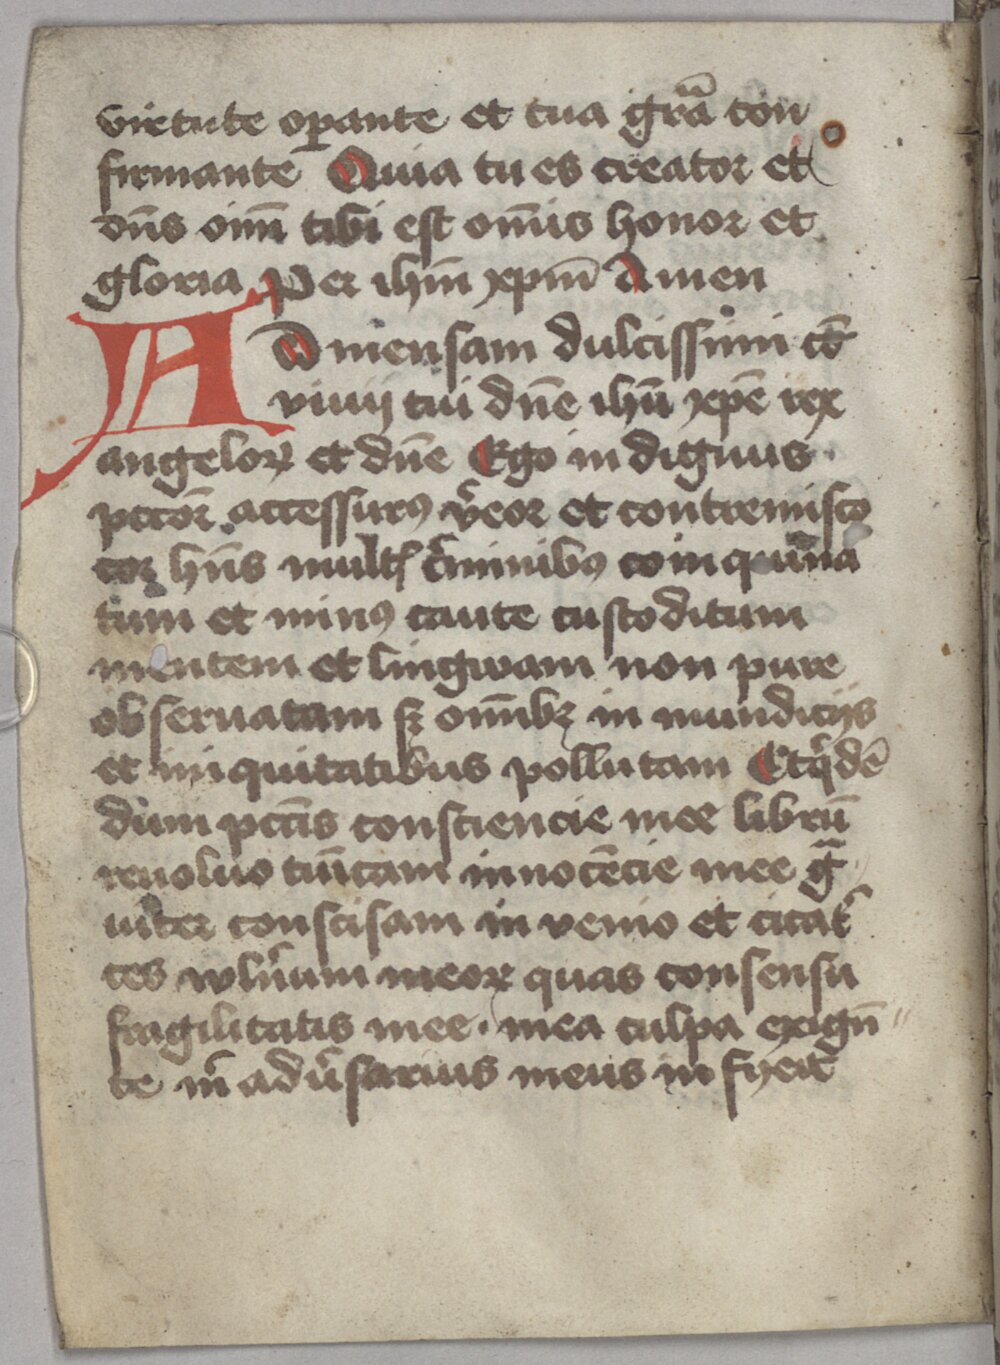 virtute oꝑante et tua gr̃a con
firmante Quia tu es creator et
dñs oim̃ tibi est om̃is honor et
gloria Per ihm̃ xpm̃ Amen
AD mensam dulcissimi cō
viuij tui dñe ihũ xpē rex
angeloꝝ et dñe Ego in dignus
pctõr accessurꝯ v̾eor et contremisco
cor hñs mult̾ c̾minibꝯ coinquina
tum et minꝯ caute custoditum
mentem et lingwam non pure
obseruatam sꝫ om̃ibꝫ in mundicijs
et iniquitatibus pollutam Et q̾dē
dum pctĩs consciencie mee librū
reuoluo tūicam innocēcie mee g̃
uiter conscisam in venio et citat̾
ces wln̾um meoꝝ quas consensu
fragilitatis mee · mea culpa exigñ
te m̾ adũsarius meus in fyxit